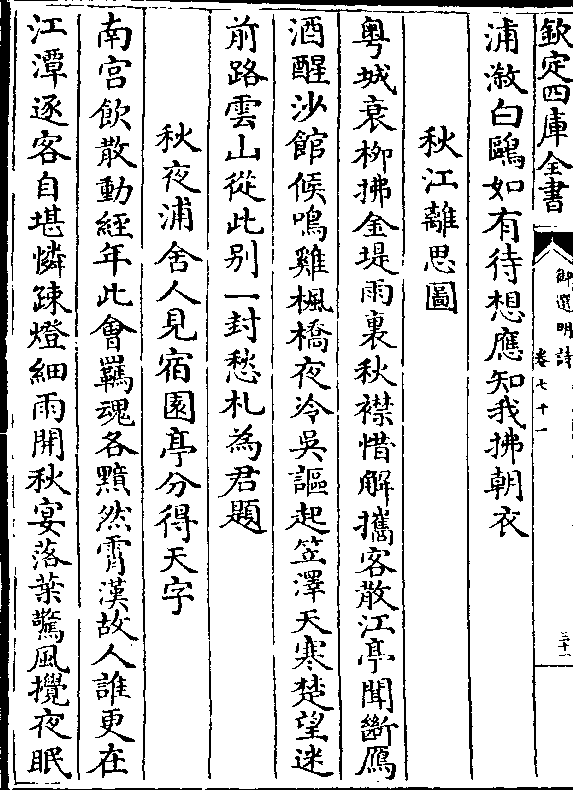 欽定四庫全書
御選明詩
卷七十一
三十一
浦漵白鷗如有待想應知我拂朝衣
秋江離思圖
粤城衰栁拂金堤雨裏秋襟惜解攜客散江亭聞斷鴈
酒醒沙館候鳴雞楓橋夜冷吳謳起笠澤天寒楚望迷
前路雲山從此别一封愁札為君題
秋夜浦舍人見宿園亭分得天字
南宫飲散動經年此㑹羈魂各黯然霄漢故人誰更在
江潭逐客自堪憐疎燈細雨開秋宴落葉驚風攪夜眠